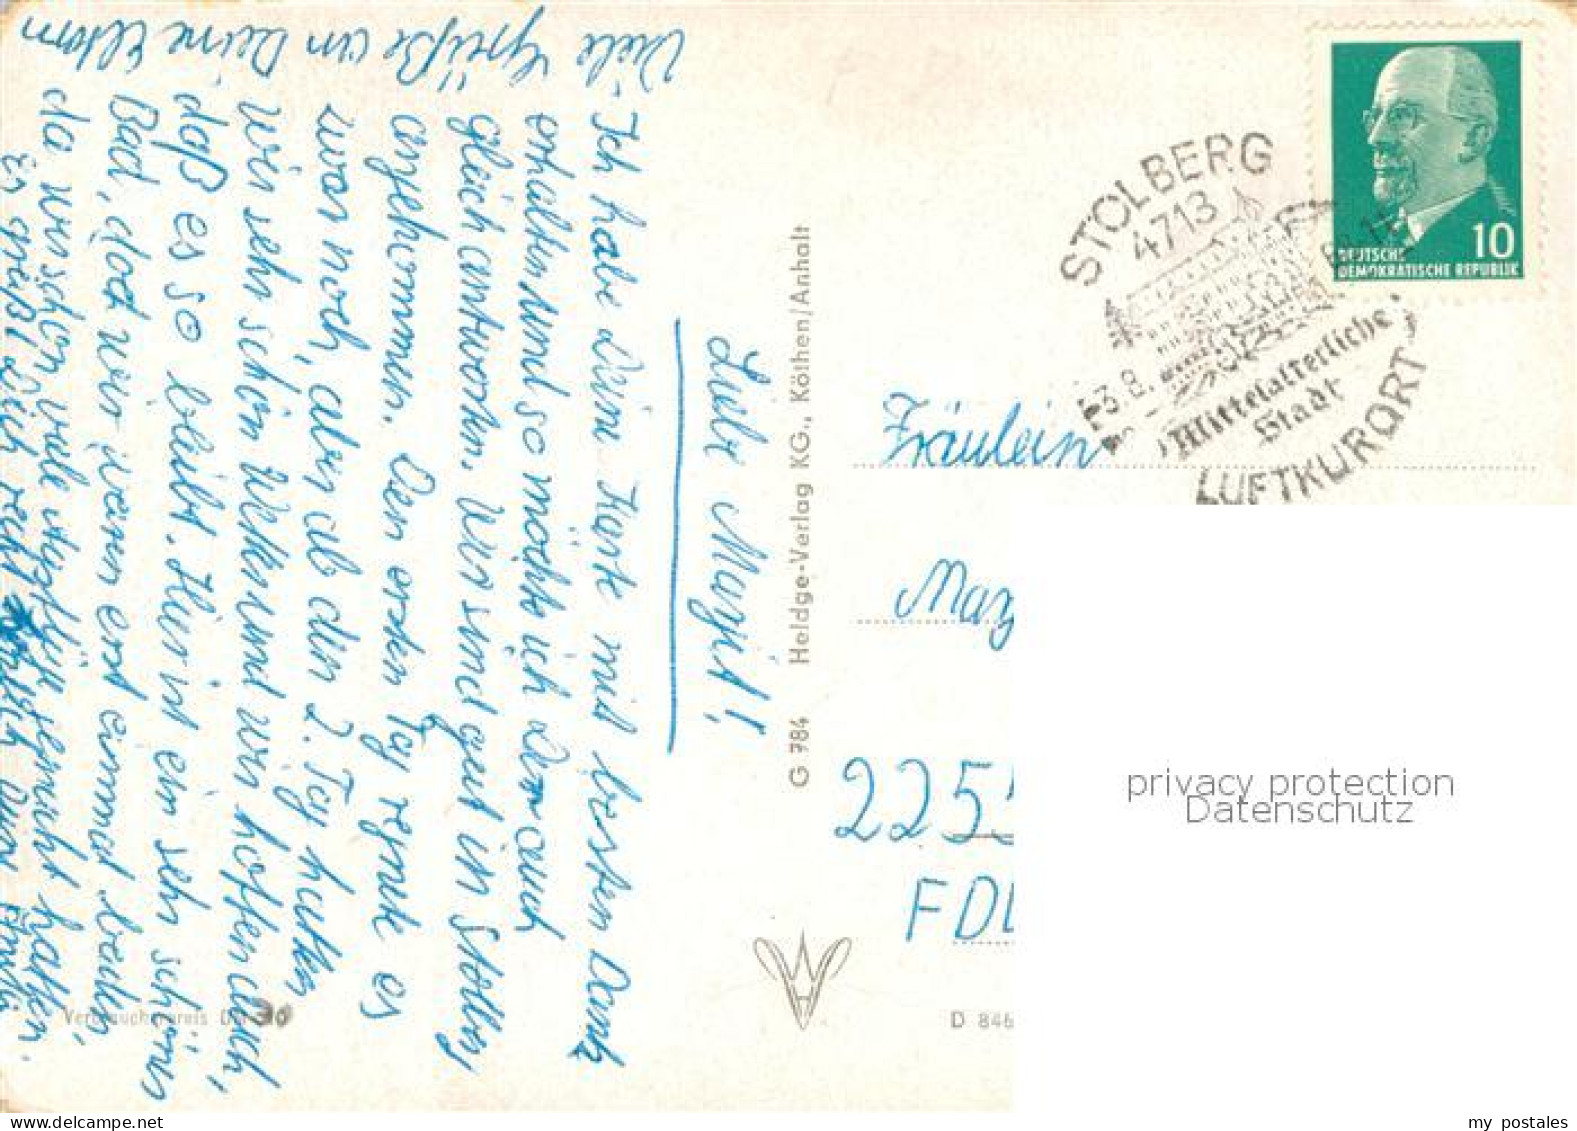 Liebe Margit!
Ich habe Deine Karte mit besten Dank
erhalten und so möchte ich Dir auch
gleich antworten. Wir sind gut in Stolberg
angekommen. Den ersten Tag regnete es
zwar noch, aber ab den 2. Tag hatten
wir sehr schön Wetter und wir hoffen auch,
daß es so bleibt. Hier ist ein sehr schönes
Bad, doch wir waren erst einmal baden,
da wir schon viele
Es grüßt Dich recht Deine
Viele Grüße an Deine Eltern
G 784 Heldge-Verlag KG., Köthen/Anhalt
Verbraucherpreis
STOLBERG
4713
3.8.
Mittelalterliche
Stadt
LUFTKURORT
10
DEUTSCHE
DEMOKRATISCHE REPUBLIK
Fräulein
Mar
225
FD
D 846
privacy protection
Datenschutz
my postales